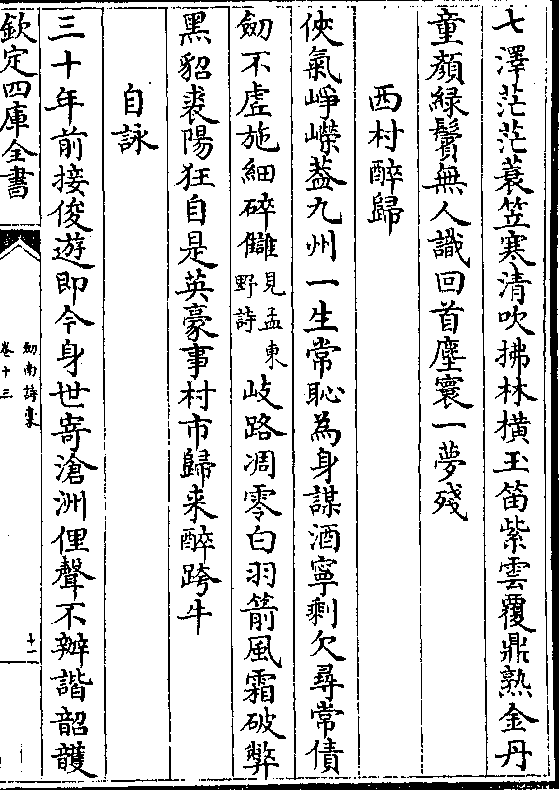 七澤茫茫蓑笠寒清吹拂林橫玉笛紫雲覆鼎熟金丹
童顏緑鬢無人識回首塵寰一夢殘
西村醉歸
俠氣崢嶸葢九州一生常恥為身謀酒寧剩欠尋常債
劒不虛施細碎讎見孟東野詩岐路凋零白羽箭風霜破弊
黑貂裘陽狂自是英豪事村市歸来醉跨牛
自詠
三十年前接俊遊即今身世寄滄洲俚聲不辦諧韶頀
欽定四庫全書
劒南詩稾
卷十三
十一